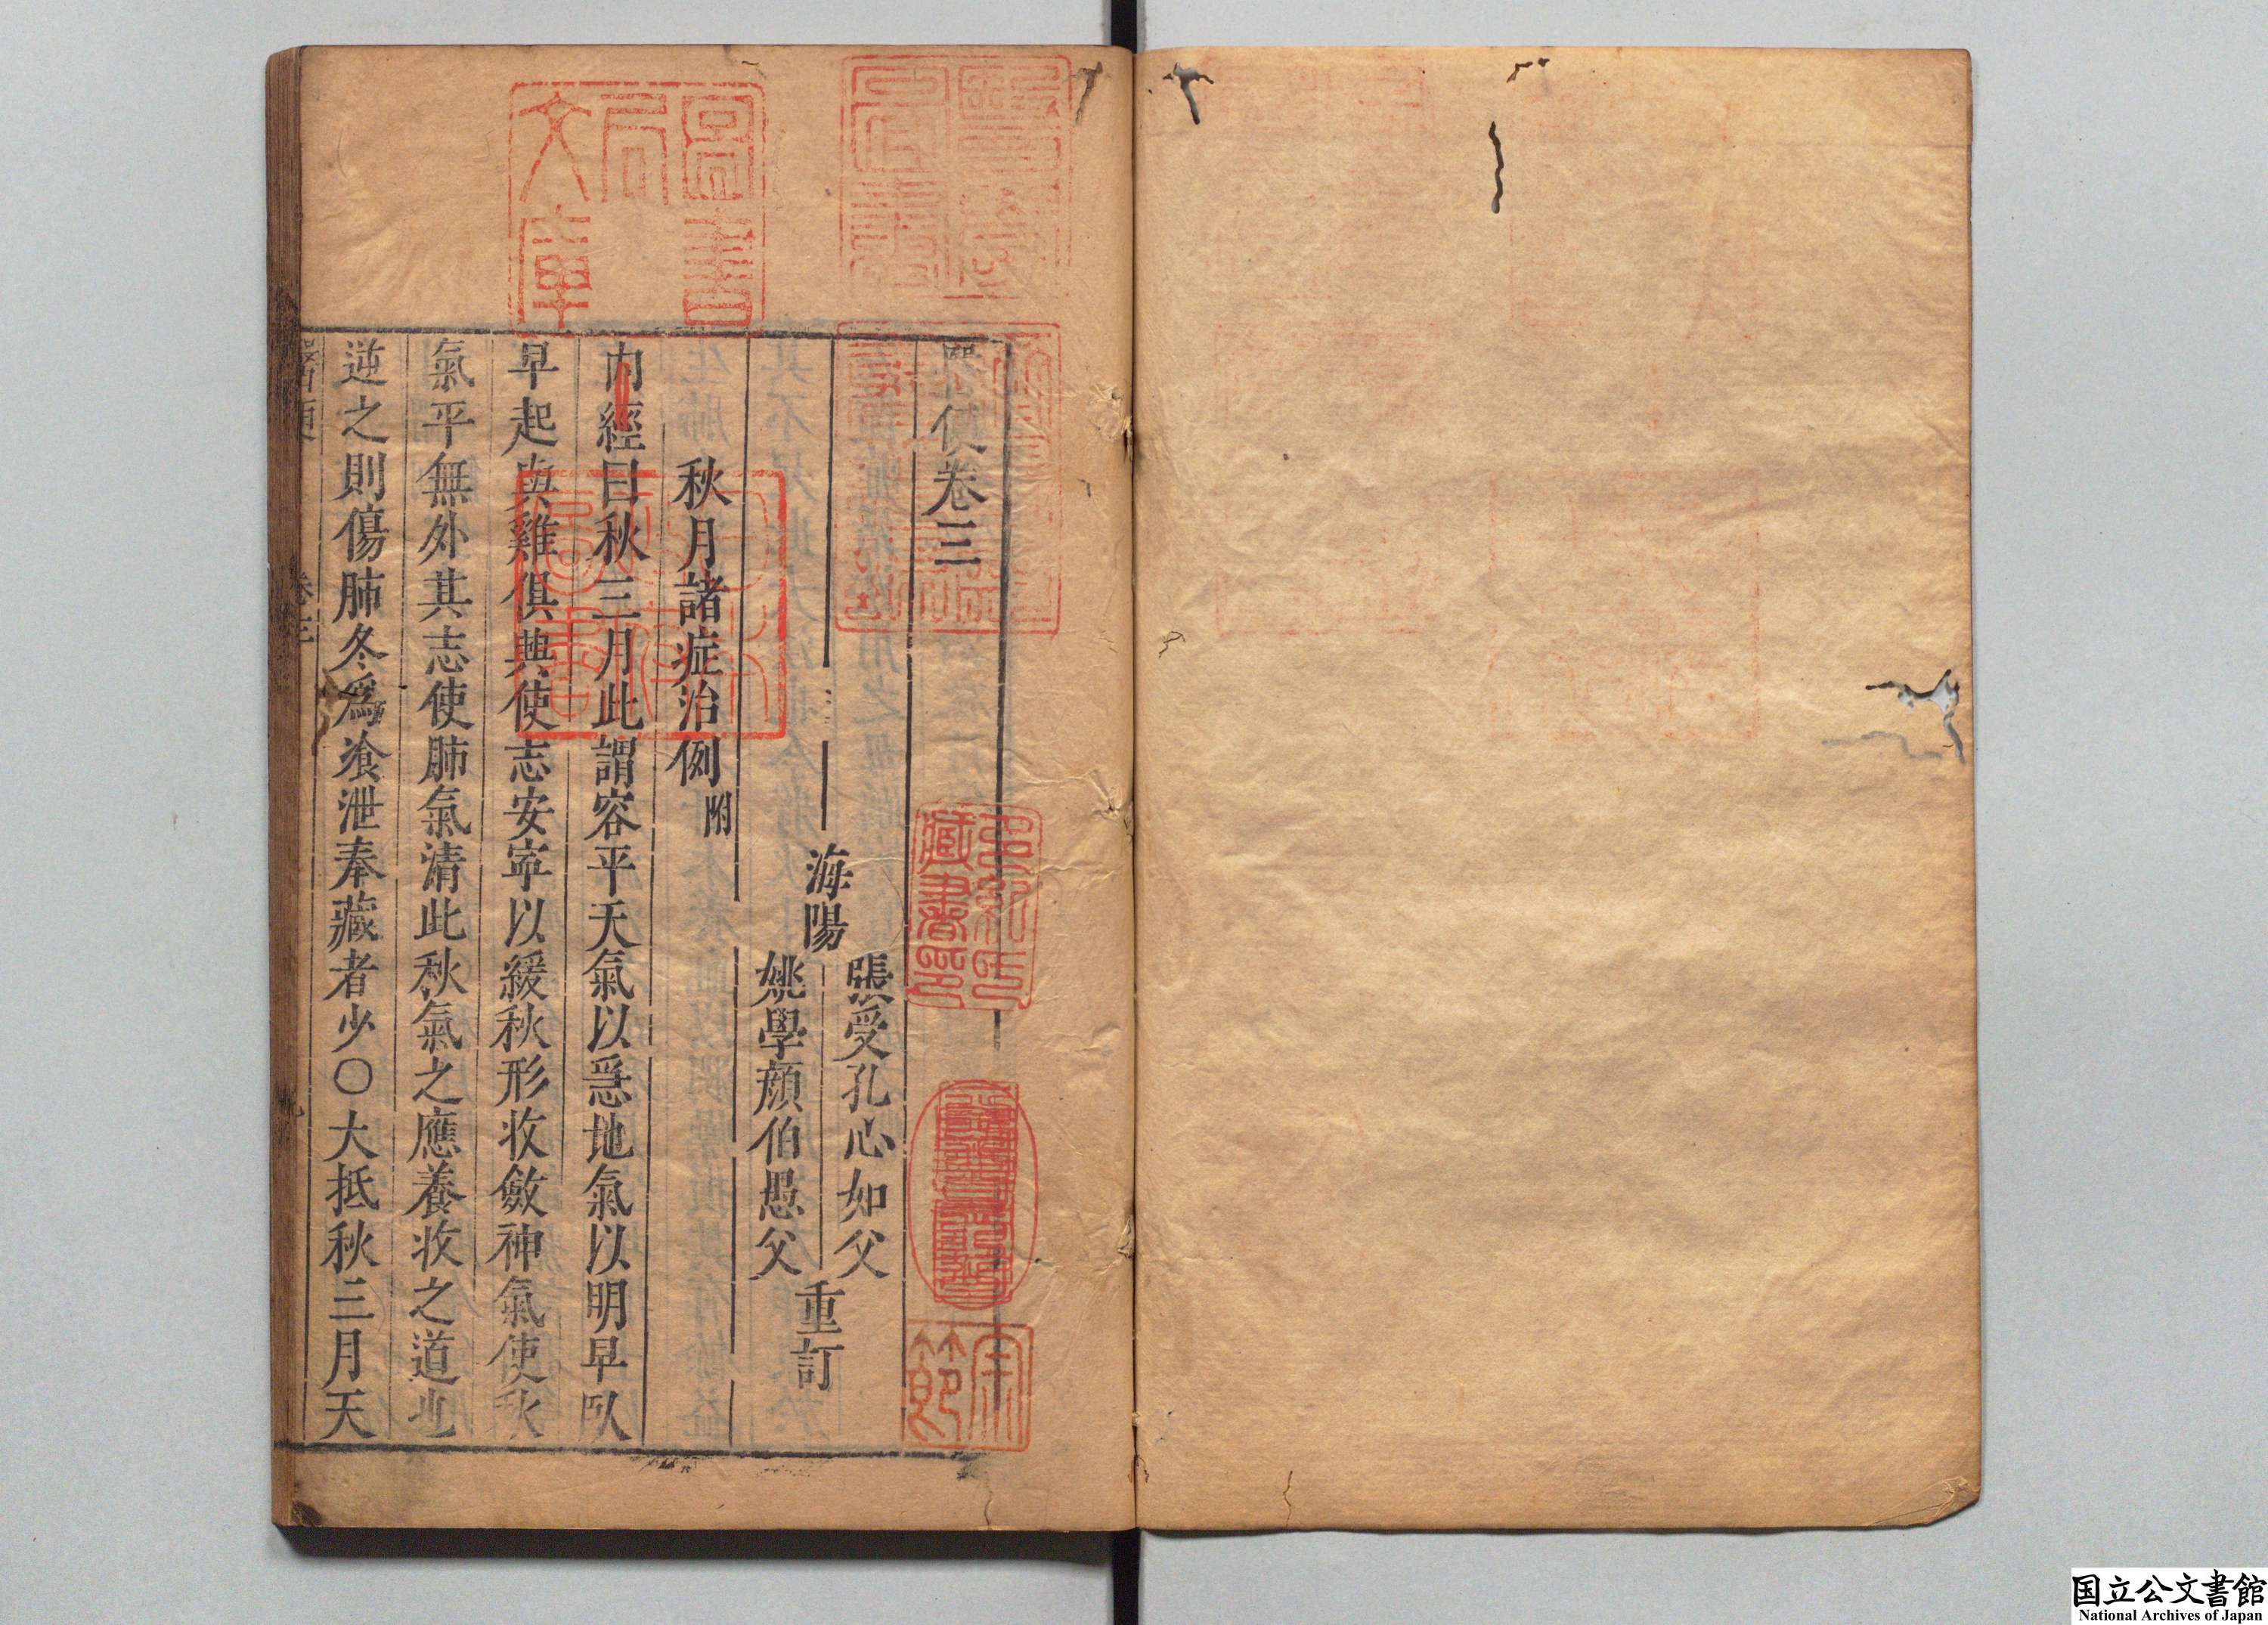 醫便卷三
海陽
張受孔心如父
姚學顏伯愚父
重訂
秋月諸症治例附
內經曰秋三月此謂容平天氣以急地氣以明早臥
早起與雞俱興使志安寧以緩秋形收斂神氣使秋
氣平無外其志使肺氣清此秋氣之應養收之道也
逆之則傷肺冬爲飧泄奉藏者少〇大抵秋三月天
醫便
卷三
圖書
局
文庫
藏書印
国立公文書館
National Archives of Japan